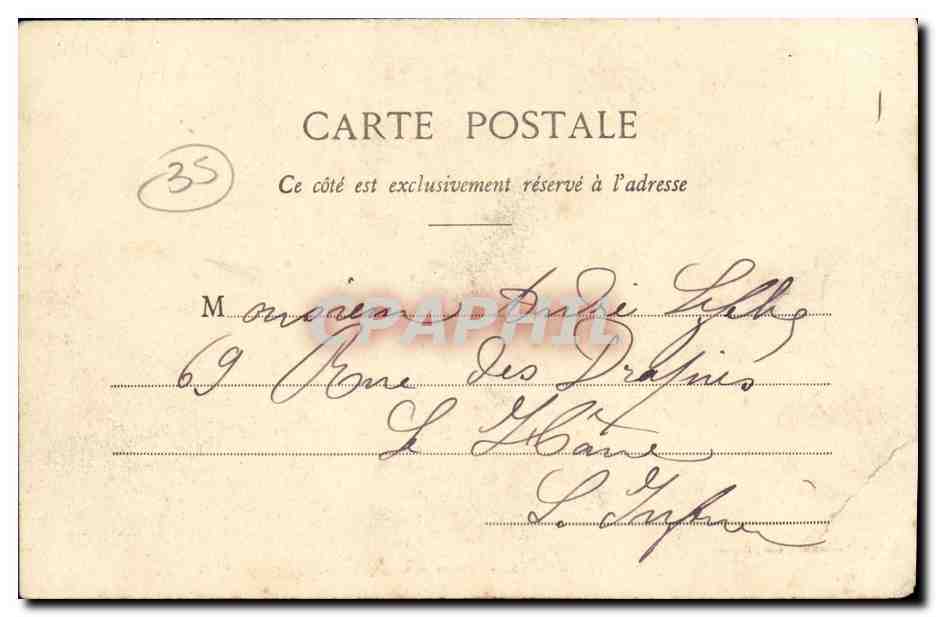 CARTE POSTALE
35
Ce côté est exclusivement réservé à l'adresse
Monsieur André
69 Rue des
Le Hâvre
S. Inférieure
CPAPHIL